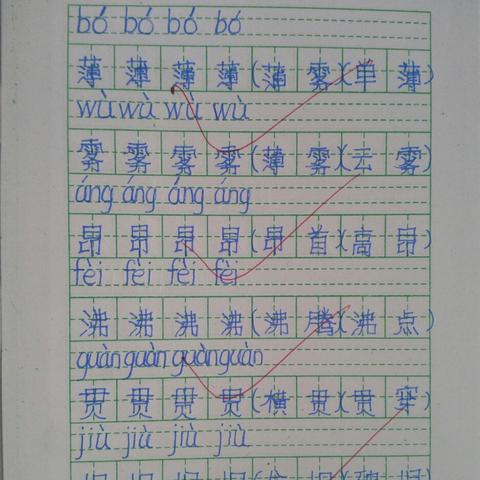 bó bó bó bó
薄 薄 薄 薄(薄 雾)(单 薄)
wù wù wù wù
雾 雾 雾 雾(薄 雾)(去 雾)
áng áng áng áng
昂 昂 昂 昂(昂 首)(高 昂)
fèi fèi fèi fèi
沸 沸 沸 沸(沸 腾)(沸 点)
guàn guàn guàn guàn
贯 贯 贯 贯(横 贯)(贯 穿)
jiù jiù jiù jiù